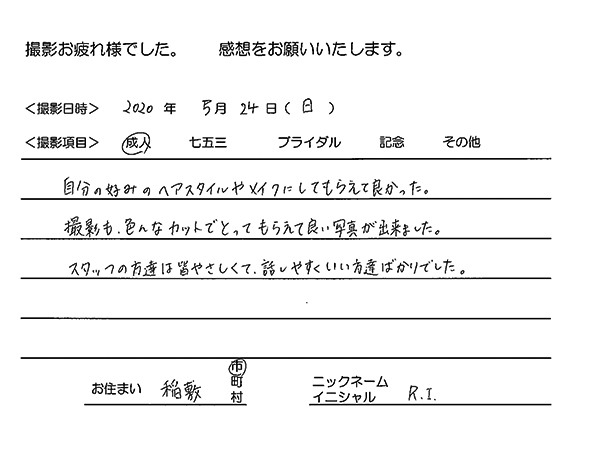 撮影お疲れ様でした。　感想をお願いいたします。
＜撮影日時＞　2020 年　5月 24日（日）
＜撮影項目＞　成人　七五三　ブライダル　記念　その他
自分の好みのヘアスタイルやメイクにしてもらえて良かった。
撮影も、色んなカットでとってもらえて良い写真が出来ました。
スタッフの方達は皆やさしくて、話しやすくいい方達ばかりでした。
お住まい　稲敷　市町村
ニックネーム
イニシャル　R.I.